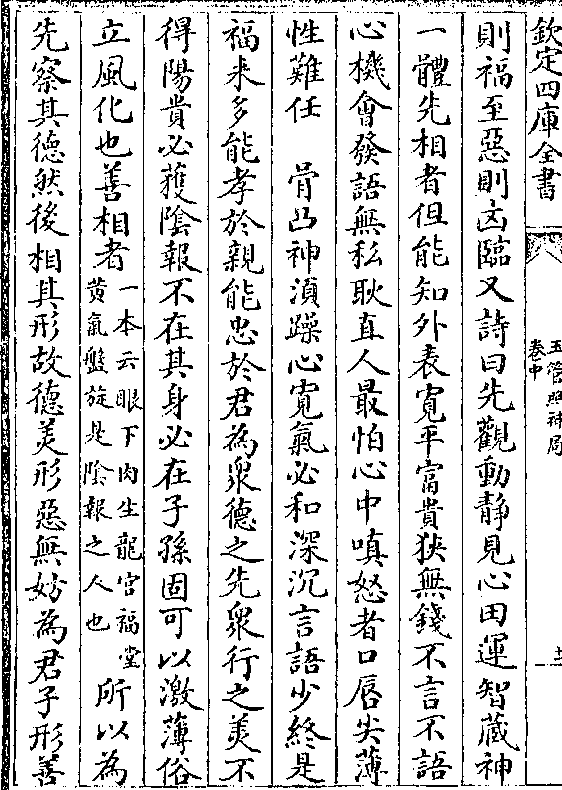 欽定四庫全書
玉管照神局
卷中
十二
則福至惡則凶臨又詩曰先觀動靜見心田運智蔵神
一體先相者但能知外表寛平富貴狹無錢不言不語
心機會發語無私耿直人最怕心中嗔怒者口唇尖薄
性難任　骨凸神湏躁心寛氣必和深沉言語少終是
福来多能孝於親能忠於君為衆德之先衆行之美不
得陽貴必獲陰報不在其身必在子孫固可以激薄俗
立風化也善相者一本云眼下肉生龍宫福堂黄氣盤旋是陰報之人也所以為
先察其德然後相其形故德美形惡無妨為君子形善